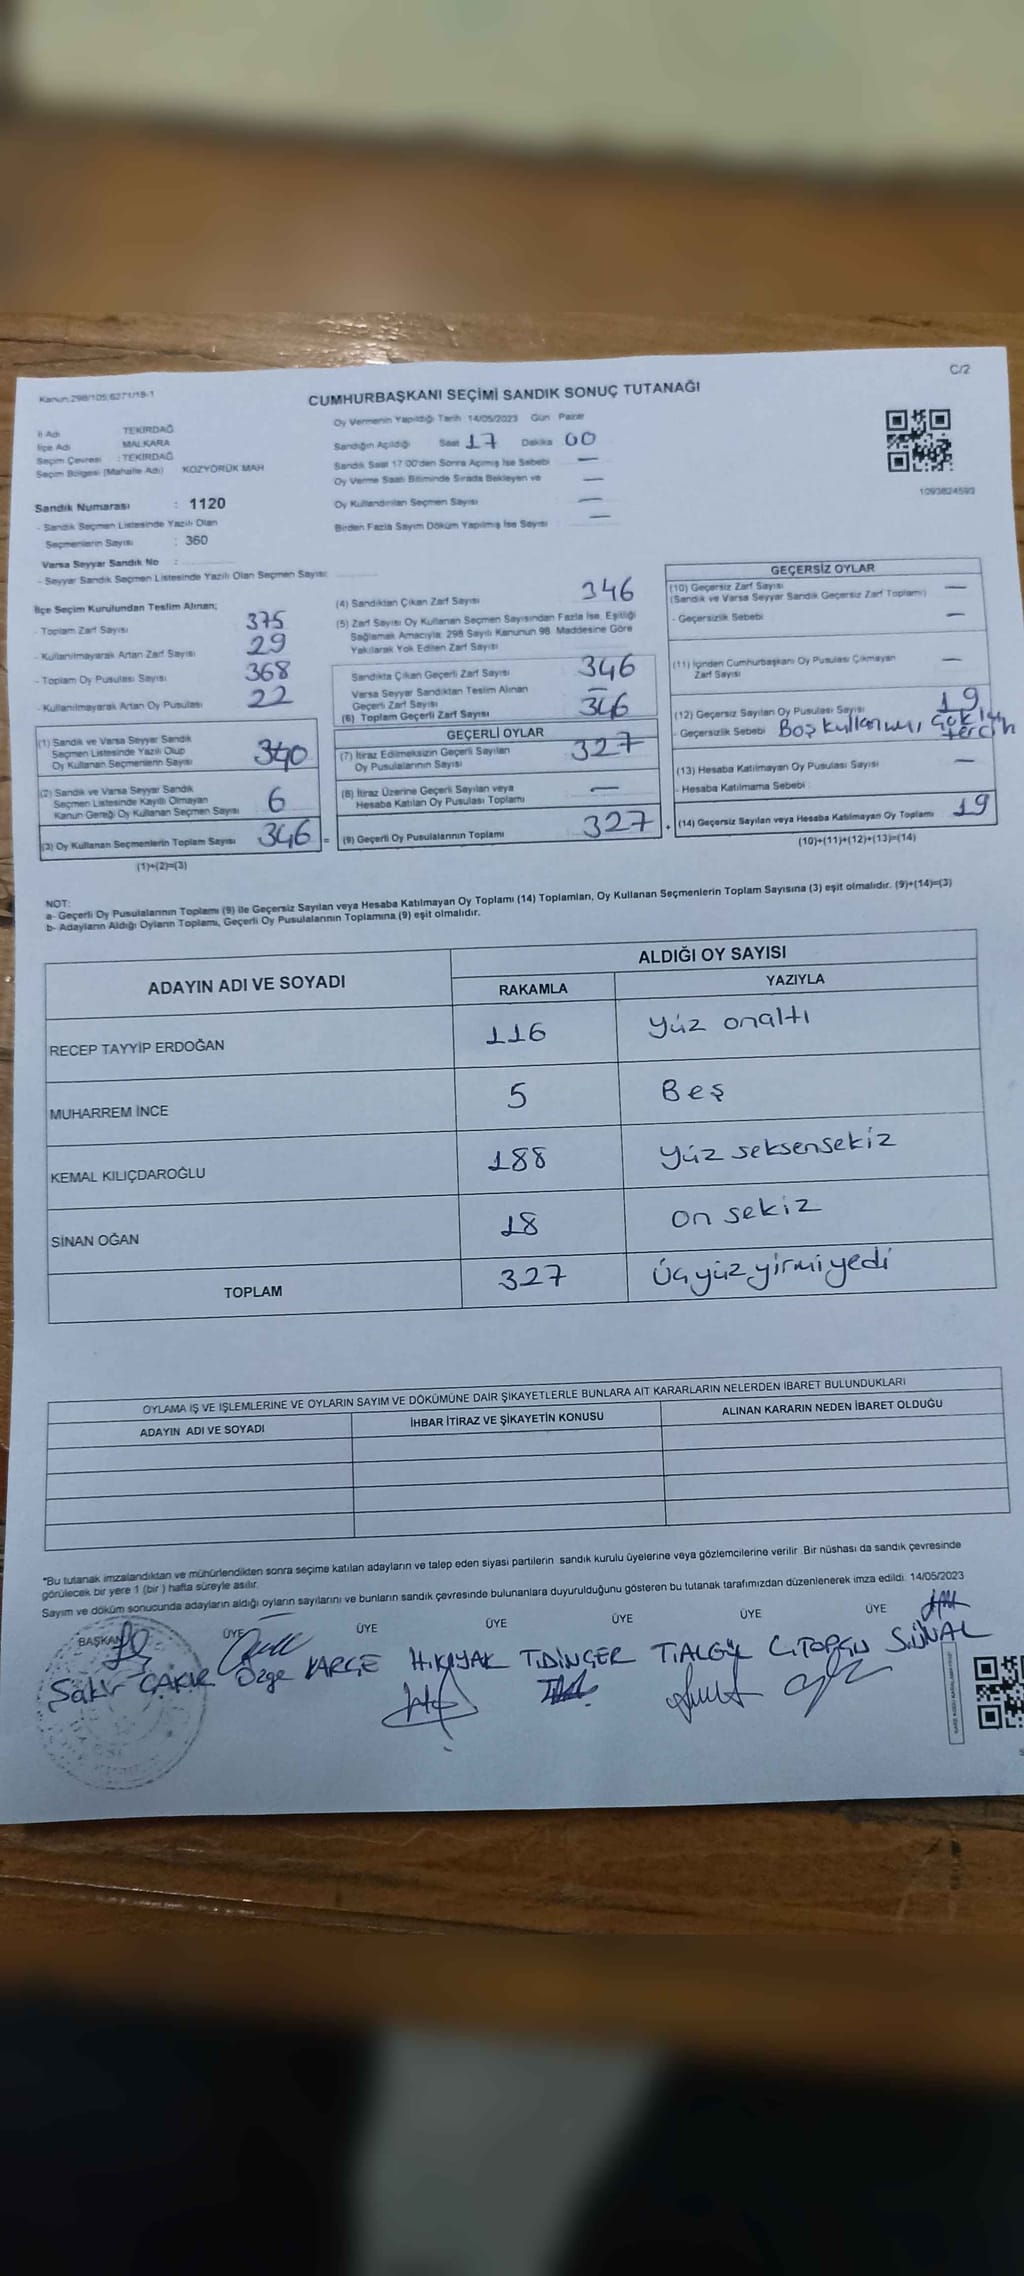 Kanun:298/105;6271/18-1
C/2
CUMHURBAŞKANI SEÇİMİ SANDIK SONUÇ TUTANAĞI
İl Adı TEKİRDAĞ
İlçe Adı MALKARA
Seçim Çevresi : TEKİRDAĞ
Seçim Bölgesi (Mahalle Adı) KOZYÖRÜK MAH
Oy Vermenin Yapıldığı Tarih 14/05/2023 Gün Pazar
Sandığın Açıldığı Saat 17 Dakika 00
Sandık Saat 17:00'den Sonra Açılmış İse Sebebi —
Oy Verme Saati Bitiminde Sırada Bekleyen ve —
Oy Kullandırılan Seçmen Sayısı —
Birden Fazla Sayım Döküm Yapılmış İse Sayısı —
1093824593
Sandık Numarası : 1120
- Sandık Seçmen Listesinde Yazılı Olan
Seçmenlerin Sayısı : 360
Varsa Seyyar Sandık No :
- Seyyar Sandık Seçmen Listesinde Yazılı Olan Seçmen Sayısı:
İlçe Seçim Kurulundan Teslim Alınan;
- Toplam Zarf Sayısı 375
- Kullanılmayarak Artan Zarf Sayısı 29
- Toplam Oy Pusulası Sayısı 368
- Kullanılmayarak Artan Oy Pusulası 22
(1) Sandık ve Varsa Seyyar Sandık
Seçmen Listesinde Yazılı Olup
Oy Kullanan Seçmenlerin Sayısı 340
(2) Sandık ve Varsa Seyyar Sandık
Seçmen Listesinde Kayıtlı Olmayan
Kanun Gereği Oy Kullanan Seçmen Sayısı 6
(3) Oy Kullanan Seçmenlerin Toplam Sayısı 346 =
(1)+(2)=(3)
(4) Sandıktan Çıkan Zarf Sayısı 346
(5) Zarf Sayısı Oy Kullanan Seçmen Sayısından Fazla İse, Eşitliği
Sağlamak Amacıyla; 298 Sayılı Kanunun 98. Maddesine Göre
Yakılarak Yok Edilen Zarf Sayısı
Sandıkta Çıkan Geçerli Zarf Sayısı 346
Varsa Seyyar Sandıktan Teslim Alınan
Geçerli Zarf Sayısı —
(6) Toplam Geçerli Zarf Sayısı 346
GEÇERLİ OYLAR
(7) İtiraz Edilmeksizin Geçerli Sayılan
Oy Pusulalarının Sayısı 327
(8) İtiraz Üzerine Geçerli Sayılan veya
Hesaba Katılan Oy Pusulası Toplamı —
(9) Geçerli Oy Pusulalarının Toplamı 327
GEÇERSİZ OYLAR
(10) Geçersiz Zarf Sayısı —
(Sandık ve Varsa Seyyar Sandık Geçersiz Zarf Toplamı)
- Geçersizlik Sebebi —
(11) İçinden Cumhurbaşkanı Oy Pusulası Çıkmayan —
Zarf Sayısı
(12) Geçersiz Sayılan Oy Pusulası Sayısı 19
- Geçersizlik Sebebi Boş kullanımı, çoklu
tercih
(13) Hesaba Katılmayan Oy Pusulası Sayısı —
- Hesaba Katılmama Sebebi
(14) Geçersiz Sayılan veya Hesaba Katılmayan Oy Toplamı 19
(10)+(11)+(12)+(13)=(14)
NOT:
a- Geçerli Oy Pusulalarının Toplamı (9) ile Geçersiz Sayılan veya Hesaba Katılmayan Oy Toplamı (14) Toplamları, Oy Kullanan Seçmenlerin Toplam Sayısına (3) eşit olmalıdır. (9)+(14)=(3)
b- Adayların Aldığı Oyların Toplamı, Geçerli Oy Pusulalarının Toplamına (9) eşit olmalıdır.
ADAYIN ADI VE SOYADI
ALDIĞI OY SAYISI
RAKAMLA YAZIYLA
RECEP TAYYİP ERDOĞAN 116 Yüz onaltı
MUHARREM İNCE 5 Beş
KEMAL KILIÇDAROĞLU 188 Yüz seksensekiz
SİNAN OĞAN 18 On sekiz
TOPLAM 327 Üçyüz yirmiyedi
OYLAMA İŞ VE İŞLEMLERİNE VE OYLARIN SAYIM VE DÖKÜMÜNE DAİR ŞİKAYETLERLE BUNLARA AİT KARARLARIN NELERDEN İBARET BULUNDUKLARI
ADAYIN ADI VE SOYADI İHBAR İTİRAZ VE ŞİKAYETİN KONUSU ALINAN KARARIN NEDEN İBARET OLDUĞU
*Bu tutanak imzalandıktan ve mühürlendikten sonra seçime katılan adayların ve talep eden siyasi partilerin sandık kurulu üyelerine veya gözlemcilerine verilir. Bir nüshası da sandık çevresinde
görülecek bir yere 1 (bir ) hafta süreyle asılır.
Sayım ve döküm sonucunda adayların aldığı oyların sayılarını ve bunların sandık çevresinde bulunanlara duyurulduğunu gösteren bu tutanak tarafımızdan düzenlenerek imza edildi. 14/05/2023
BAŞKAN ÜYE ÜYE ÜYE ÜYE ÜYE ÜYE
Şakir ÇAKIR Özge KARGE H.KAYAK T.DİNÇER T.ALGÜL S.ÜNAL